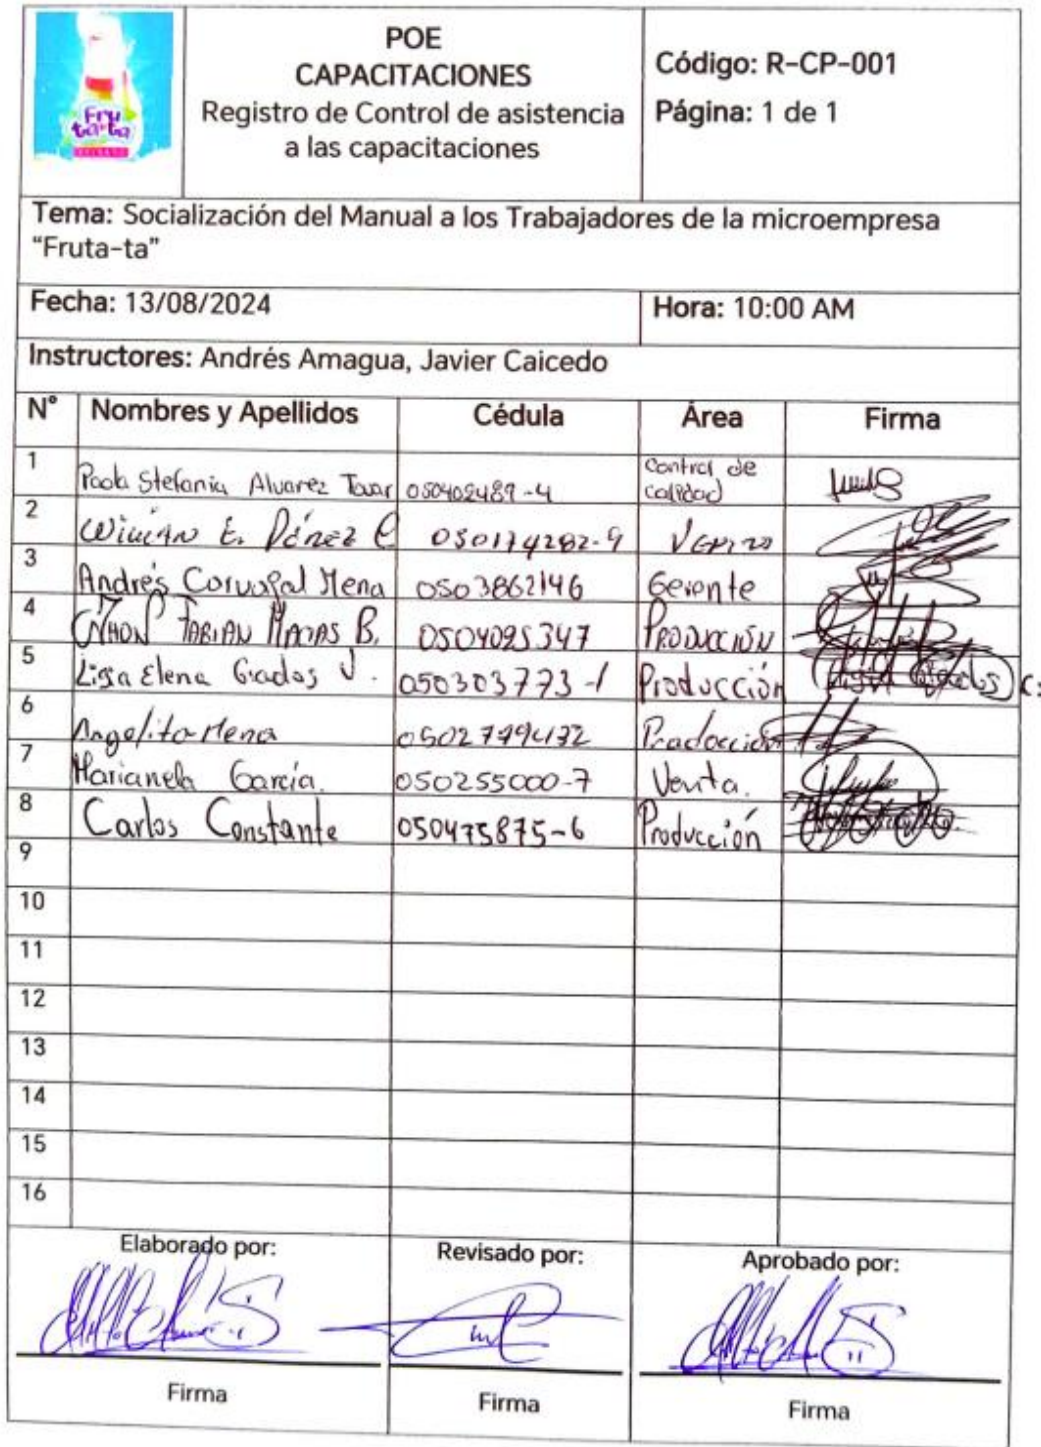 Fru
ta-ta
POE
CAPACITACIONES
Registro de Control de asistencia
a las capacitaciones
Código: R-CP-001
Página: 1 de 1
Tema: Socialización del Manual a los Trabajadores de la microempresa
"Fruta-ta"
Fecha: 13/08/2024 Hora: 10:00 AM
Instructores: Andrés Amagua, Javier Caicedo
N° Nombres y Apellidos Cédula Área Firma
1 Paola Stefania Alvarez Tovar 050402489-4 Control de
calidad
2 E. 050174282-9
3 Andrés Mena 0503862146 Gerente
4 FABIAN B. 0504095347 PRODUCCIÓN
5 Elena 050303773-1 Producción
6 Angelita Mena Producción
7 Marianela García. 050255000-7 Venta.
8 Carlos Constante 050475875-6 Producción
9
10
11
12
13
14
15
16
Elaborado por: Revisado por: Aprobado por:
Firma Firma Firma